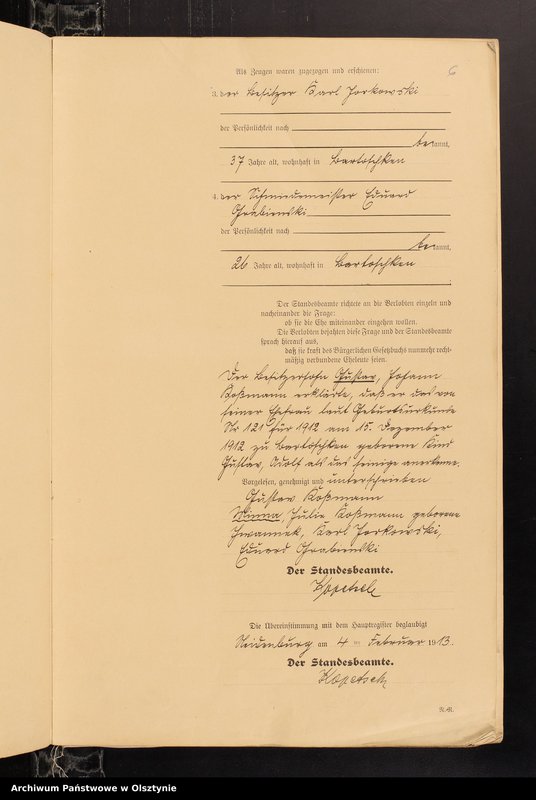 6
Als Zeugen waren zugezogen und erschienen:
3. der Besitzer Karl Jorkowski
der Persönlichkeit nach
be kannt,
37 Jahre alt, wohnhaft in Bartoschken
4. der Schmiedemeister Eduard
Grabienski
der Persönlichkeit nach
be kannt,
26 Jahre alt, wohnhaft in Bartoschken
Der Standesbeamte richtete an die Verlobten einzeln und
nacheinander die Frage:
ob sie die Ehe miteinander eingehen wollen.
Die Verlobten bejahten diese Frage und der Standesbeamte
sprach hierauf aus,
daß sie kraft des Bürgerlichen Gesetzbuchs nunmehr recht-
mäßig verbundene Eheleute seien.
Der Besitzersohn Gustav, Johann
Koßmann erklärte, daß er das von
seiner Ehefrau laut Geburtsurkunde
Nr 121 für 1912 am 15. Dezember
1912 zu Bartoschken geborene Kind
Gustav, Adolf als das seinige anerkenne.
Vorgelesen, genehmigt und unterschrieben
Gustav Koßmann
Minna, Julie Koßmann geborene
Karl Jorkowski,
Eduard Grabienski
Der Standesbeamte.
Kopetsch
Die Übereinstimmung mit dem Hauptregister beglaubigt
Neidenburg am 4 ten Februar 1913.
Der Standesbeamte.
Kopetsch
Archiwum Państwowe w Olsztynie